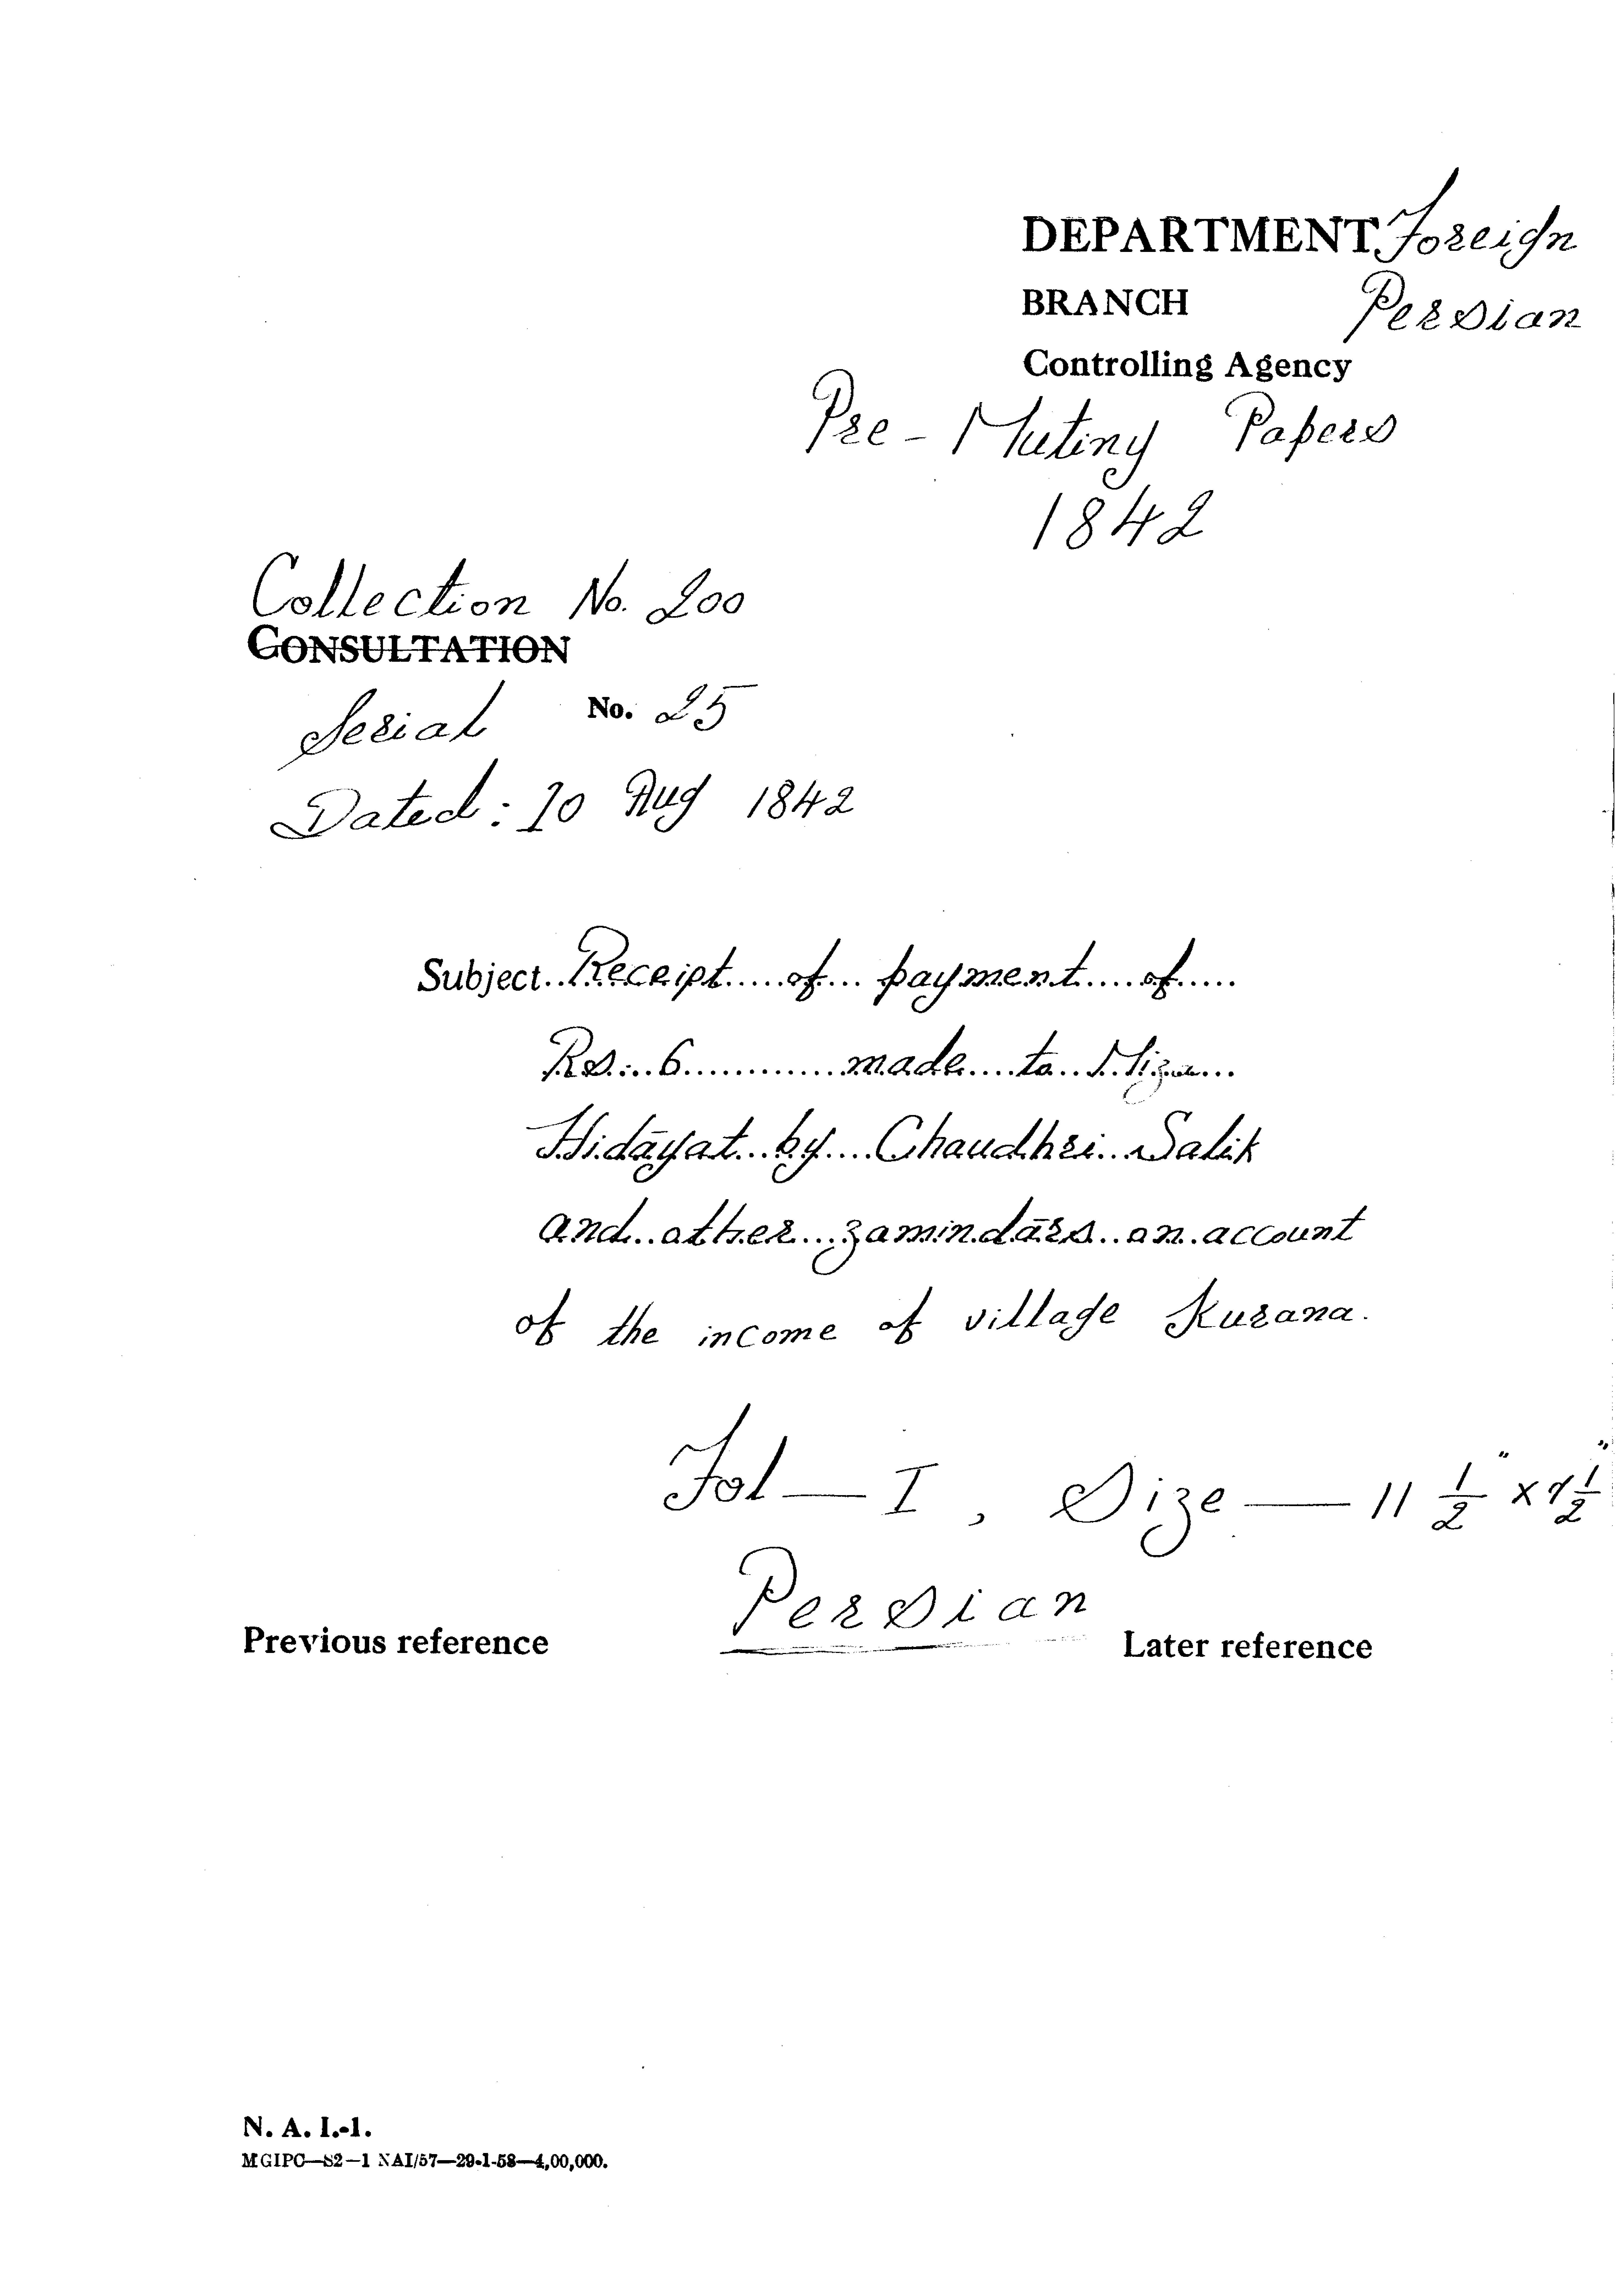 DEPARTMENT Foreign
BRANCH Persian
Controlling Agency
Pre-Mutiny Papers
1842
Collection No. 200
CONSULTATION
Serial No. 25
Dated: 10 Aug 1842
Subject..Receipt....of...payment....of.....
Rs...6............made....to..
Hidāyat...by....Chaudhri...Salik
and..other...zamindārs..on..account
of the income of village Kurana.
Fol—I, Size—11 1/2" x 7 1/2"
Persian
Previous reference Later reference
N. A. I.-1.
MGIPC—S2—1 NAI/57—29-1-58—4,00,000.